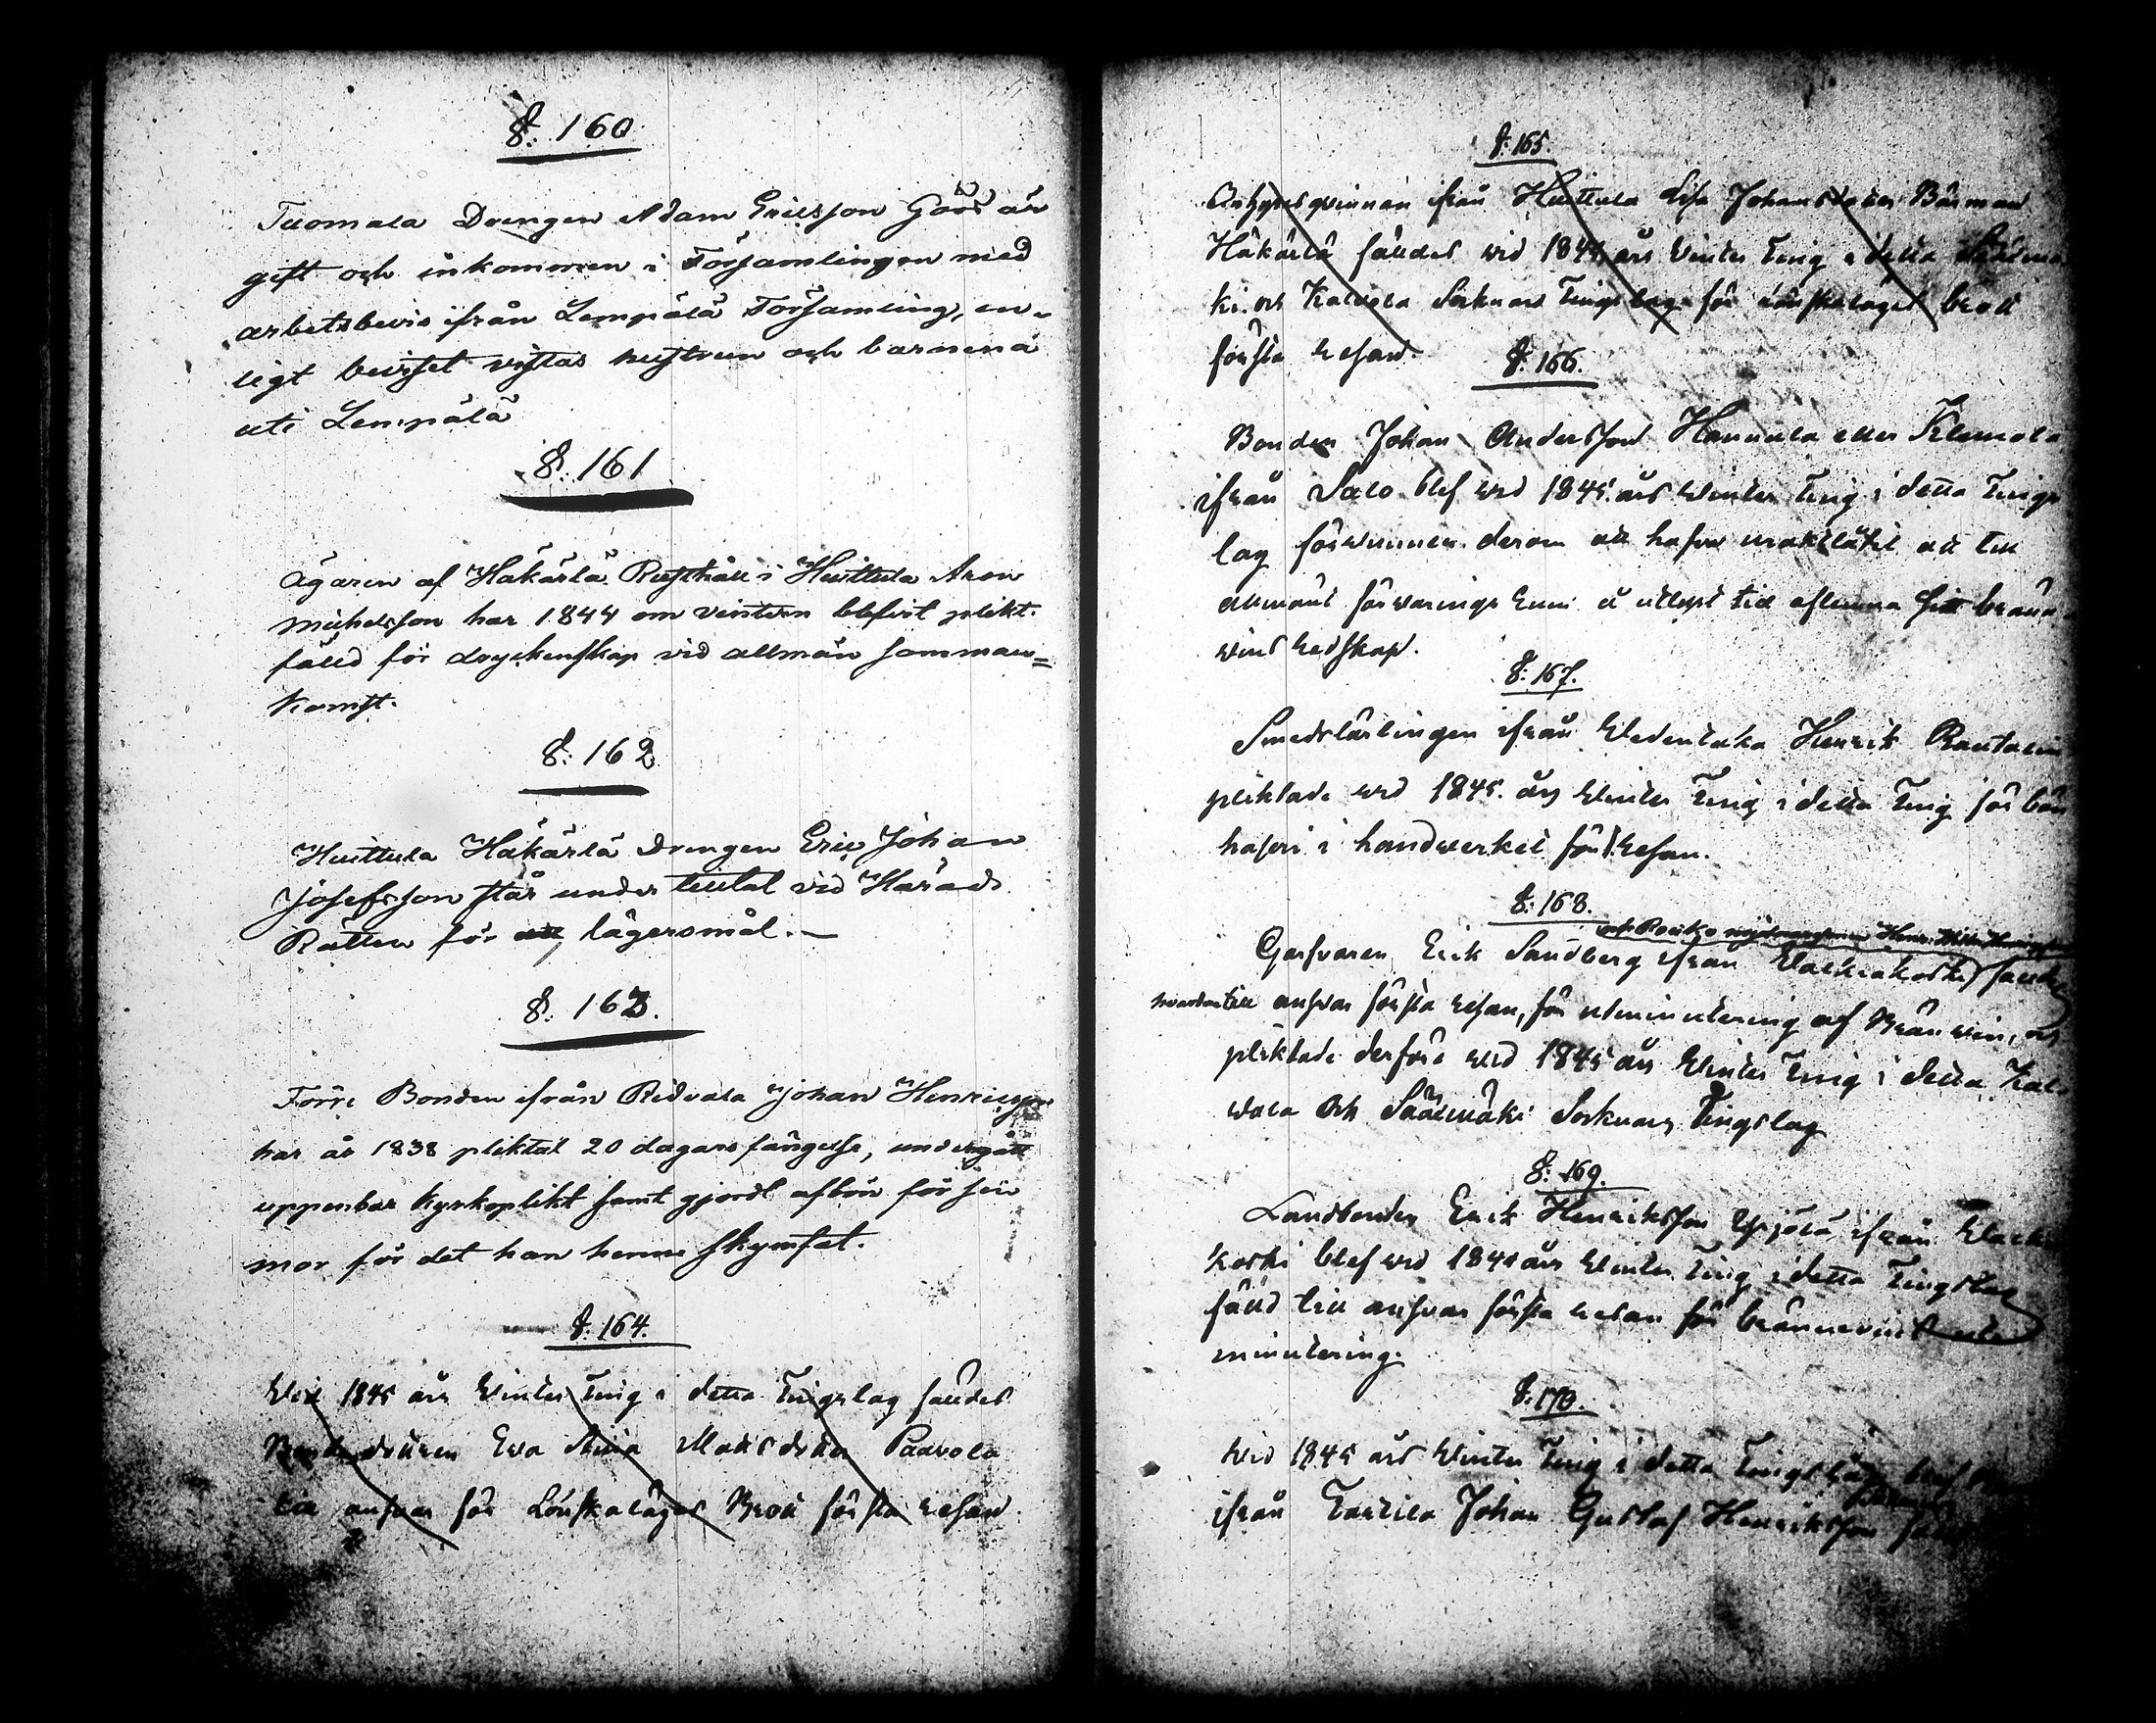 §. 160
Tuomala Drengen Adam Ericsson Göös är
gift och inkommen i Församlingen med
arbetsbevis ifrån Lempälä Församling, en-
ligt beviset vistas hustrun och barnena
uti Lempälä
§. 161
Ägaren af Häkärlä Rusthåll i Huittula Aron
Michelsson har 1844 om vintern blefvit plikt-
fälld för dryckenskap vid allmän samman=
komst.
§. 162
Huittula Häkärlä Drengen Eric Johan
Josefsson står under tilltal vid Härads
Rätten för lägersmål.
§. 163.
Förre Bonden ifrån Ridvala Johan Henricsson
har år 1838 pliktat 20 dagars fängelse, undergått
uppenbar kyrkoplikt samt gjordt afbön för sin
mor för det han henne skymfat.
§. 164.
Vid 1845 års Winter Ting i detta Tingslag fälldes
Bondedottren Eva Stina Matsdotter Paavola
till ansvar för Lönskaläges Brott första resan
§. 165.
qvinnan ifrån Huittula Lisa Johansdotter Bärman
Häkärlä fälldes vid 1845 års Vinter Ting i detta Sääxmä
ki och Kalvola Soknars Tingslag för lönskaläget brott
första resan.
§. 166.
Bonden Johan Andersson Hannula eller Klemola
ifrån Salo blef wid 1845 års Winter Ting i detta Tings
lag förwunnen derom att hafva uraktlåtit att till
allmänt förvarings rum å utlyst tid aflemna sitt bränn
vins redskap.
§. 167.
Smedslärlingen ifrån Wedentaka Henrik Rautalin
pliktade wid 1845. års Winter Ting i detta Ting för bön
haseri i handwerket för 1. resan.
§. 168.
Garfvaren Erik Sandberg ifrån Walkiakoski fälldes
till ansvar första resan, för utminutering af Bränwin, och
pliktade derföre wid 1845 års Winter Ting i detta Kal-
wola och Sääxmäki Soknars Tingslag
§. 169.
Landbonden Erik Henriksson Yrjölä ifrån Walkia
koski blef wid 1845 års Winter Ting i detta Tingslag
fälld till ansvar första resan för brännevins ut
minutering.
§. 170.
Wid 1845 års Winter Ting i detta Tingslag blef
ifrån Tarttila Johan Gustaf Henriksson